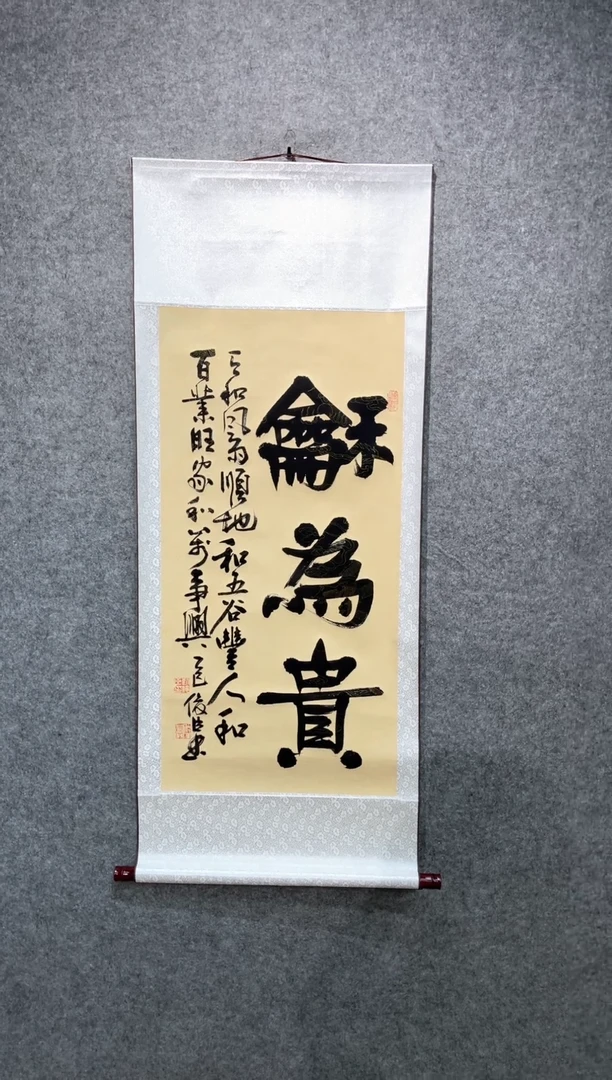 龢為貴
天和风雨順地和五谷豐人和
百業旺家和萬事興乙巳俊臣书